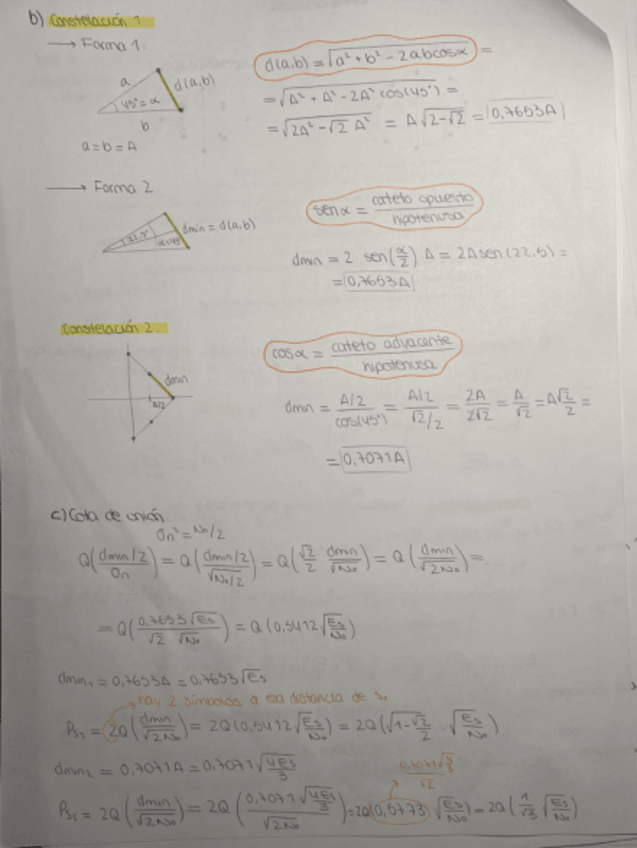 b) Constelación 1
→ Forma 1.
a
d(a,b)
45º = α
b
a = b = A
d(a,b) = √(a² + b² - 2abcosα) =
= √(A² + A² - 2A² cos(45º)) =
= √(2A² - √2 A²) = A√(2-√2) = 0,7653A
→ Forma 2
dmin = d(a,b)
senα = cateto opuesto / hipotenusa
dmin = 2 sen(α/2) A = 2A sen(22.5) =
= 0,7653A
Constelación 2.
dmin
A/2
cosα = cateto adyacente / hipotenusa
dmin = (A/2)/cos(45º) = (A/2)/(√2/2) = 2A/2√2 = A/√2 = A√2/2 =
= 0,7071A
c) Cota de unión
σn² = No/2
Q((dmin/2)/σn) = Q((dmin/2)/√(No/2)) = Q(√2/2 dmin/√No) = Q(dmin/√2No) =
= Q(0,7653√Es / √2 √No) = Q(0,5412√(Es/No))
dmin₁ = 0,7653A = 0,7653√Es
→ hay 2 símbolos a esa distancia de s.
Ps₁ = 2Q(dmin/√2No) = 2Q(0,5412√(Es/No)) = 2Q(√(1-√2/2) · √(Es/No))
dmin₂ = 0,7071A = 0,7071√(4Es/3)
Ps₂ = 2Q(dmin/√2No) = 2Q(0,7071√(4Es/3) / √2No) = 2Q(0,5773 √(Es/No)) = 2Q(1/√3 √(Es/No))